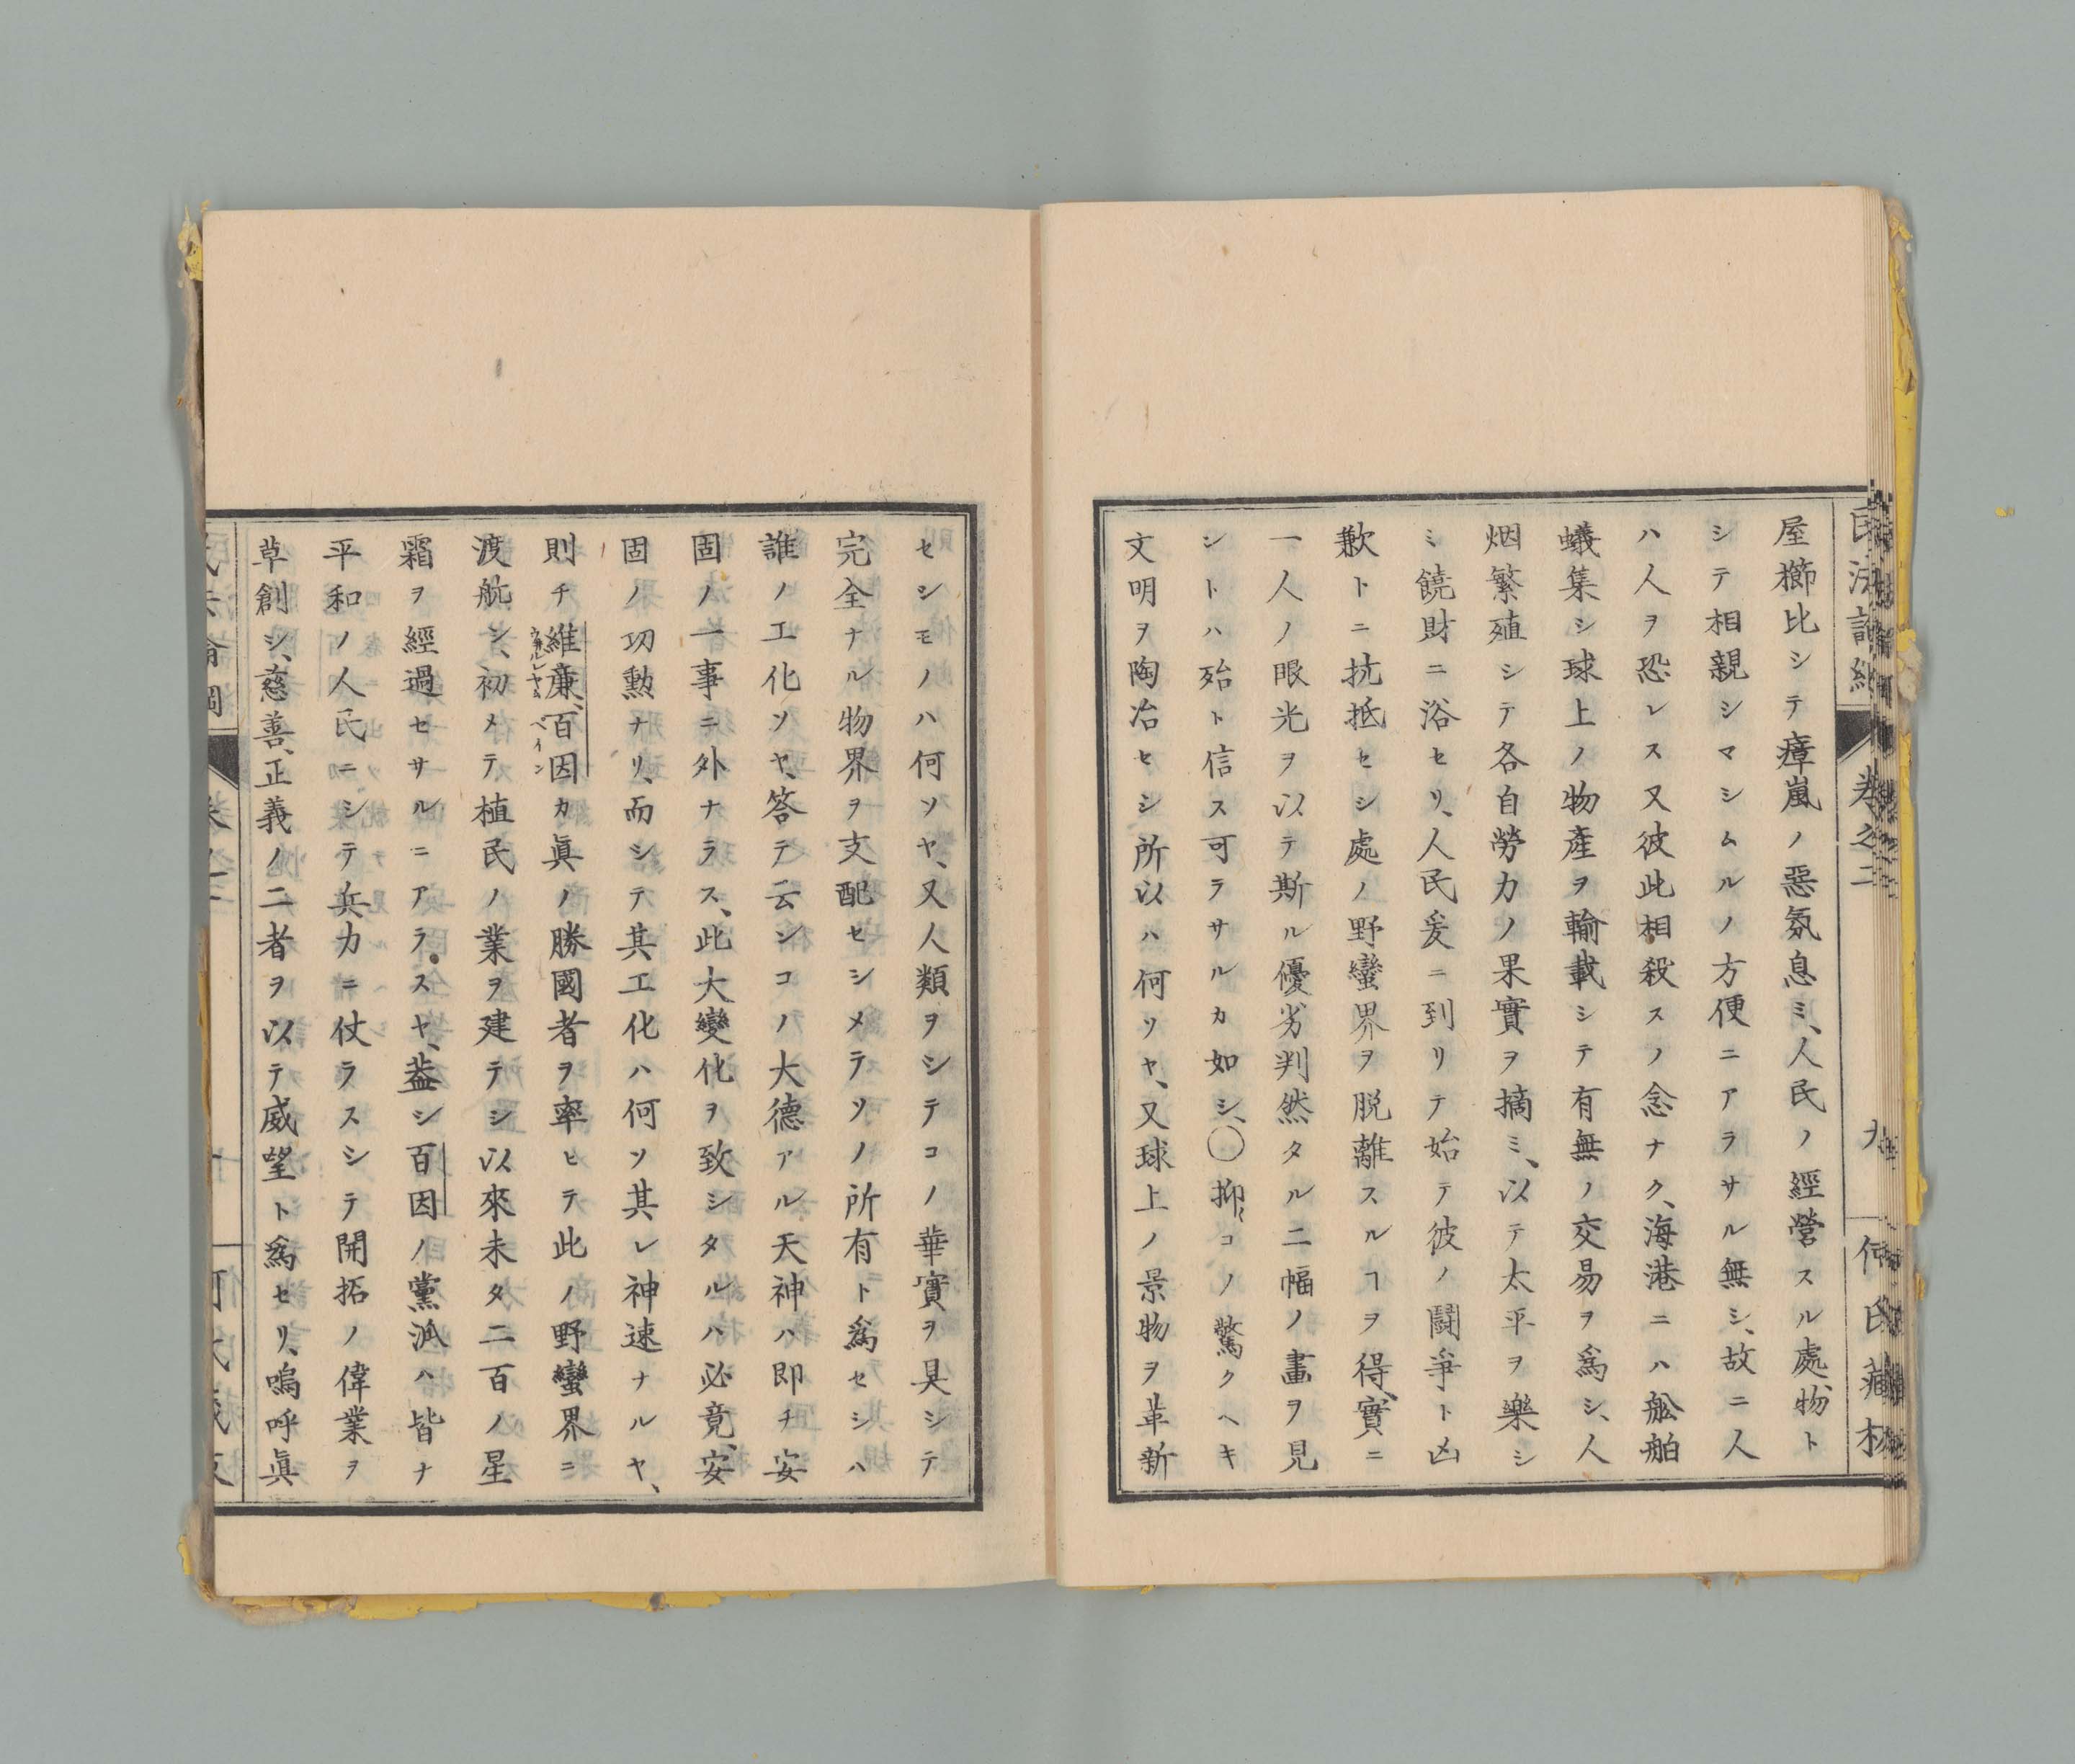 屋櫛比シテ瘴嵐ノ惡氛息ミ、人民ノ經營スル處、物ト
シテ相親シマシムルノ方便ニアラサル無シ、故ニ人
ハ人ヲ恐レス又彼此相殺スノ念ナク、海港ニハ舩舶
蟻集シ球上ノ物產ヲ輸載シテ有無ノ交易ヲ爲シ、人
烟繁殖シテ各自勞力ノ果實ヲ摘ミ、以テ太平ヲ樂シ
ミ饒財ニ浴セリ、人民爰ニ到リテ始テ彼ノ鬪爭ト凶
歉トニ抗抵セシ處ノ野蠻界ヲ脱離スルヿヲ得、實ニ
一人ノ眼光ヲ以テ斯ル優劣判然タル二幅ノ畫ヲ見
シトハ殆ト信ス可ラサルカ如シ、〇抑〻コノ驚クヘキ
文明ヲ陶冶セシ所以ハ何ソヤ、又球上ノ景物ヲ革新
卷之二
九
何氏藏板
セシモノハ何ソヤ、又人類ヲシテコノ華實ヲ具シテ
完全ナル物界ヲ支配セシメテソノ所有ト爲セシハ
誰ノ工化ソヤ、答テ云ンコノ大德アル天神ハ即チ安
固ノ一事ニ外ナラス、此大變化ヲ致シタルハ必竟、安
固ノ功勲ナリ、而シテ其工化ハ何ソ其レ神速ナルヤ、
則チ維廉、百因カ眞ノ勝國者ヲ率ヒテ此ノ野蠻界ニ
ウ井ルレヤム ペイン
渡航シ、初メテ植民ノ業ヲ建テシ以來未タ二百ノ星
霜ヲ經過セサルニアラスヤ、葢シ百因ノ黨派ハ皆ナ
平和ノ人民ニシテ兵力ニ仗ラスシテ開拓ノ偉業ヲ
草創シ、慈善、正義ノ二者ヲ以テ威望ト爲セリ、嗚呼眞